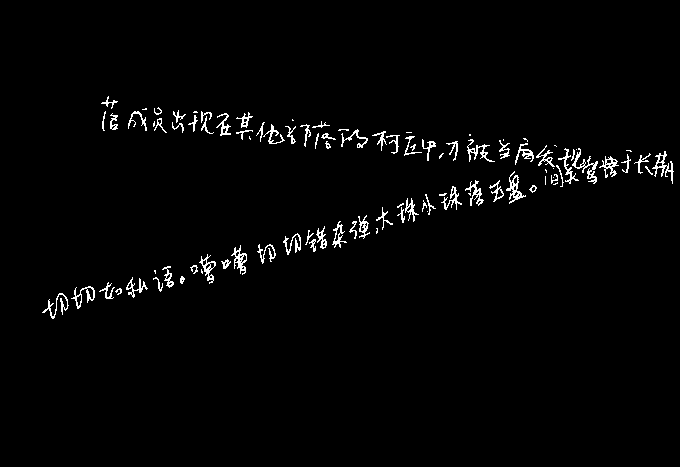 落成员出现在其他部落的村庄中,才被当局发现
切切如私语。嘈嘈切切错杂弹,大珠小珠落玉盘。间关莺语于长期